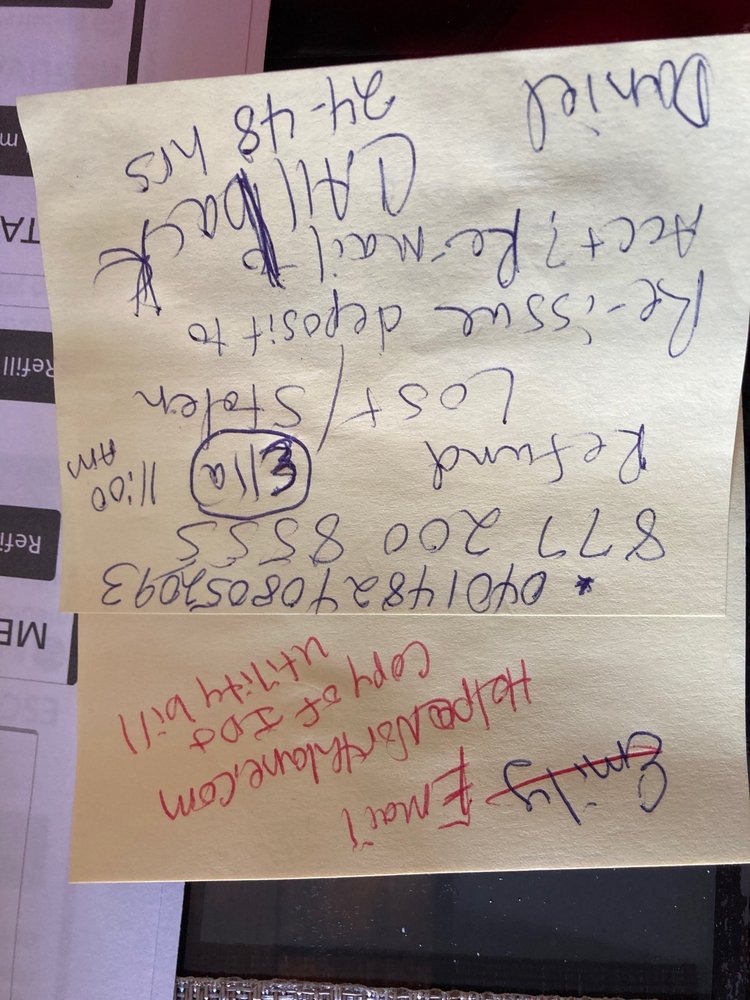 Emily Email
Help@Northlane.com
Copy of ID &
utility bill
* 0401482408052093
877 200 8555
Refund Ella 11:00 AM
Lost/Stolen
Re-issue deposit to
Acct? Re-mail to
CAll back
24-48 hrs
Daniel
ME
Refi
Refill
TA